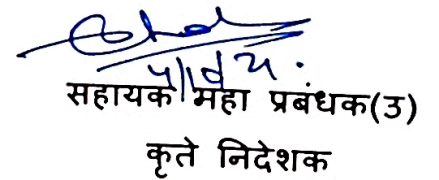 सहायक महा प्रबंधक(उ)
कृते निदेशक